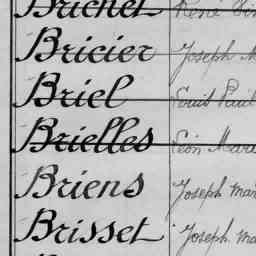 Brichet René
Bricier Joseph M
Briel Louis Paul
Brielles Léon Marc
Briens Joseph Mar
Brisset Joseph Ma